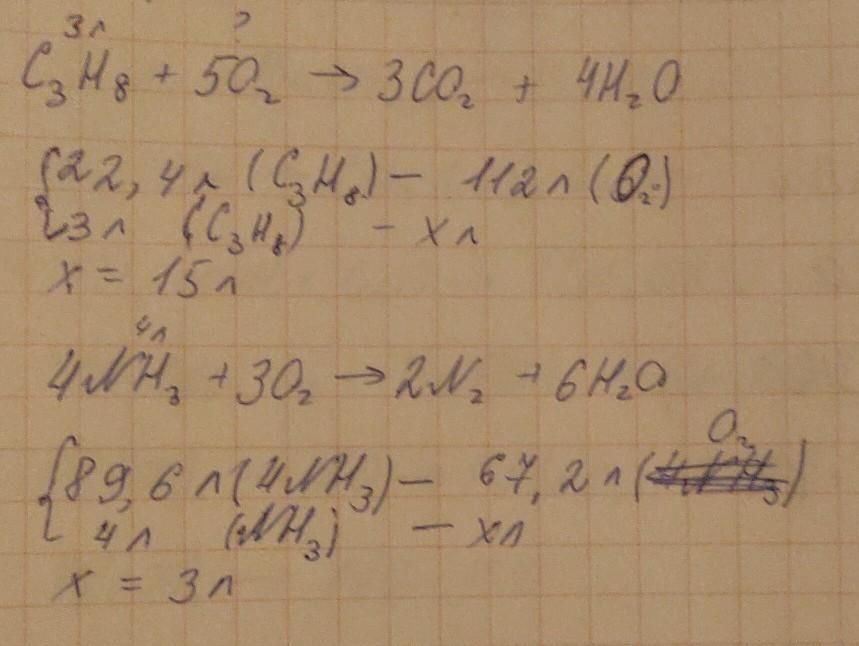 3л ?
C₃H₈ + 5O₂ → 3CO₂ + 4H₂O
{22,4 л (C₃H₈) — 112 л (O₂)
{3 л (C₃H₈) - x л
x = 15 л
4л
4NH₃ + 3O₂ → 2N₂ + 6H₂O
O₂
{89,6 л (4NH₃) — 67,2 л (4NH₃)
4 л (NH₃) — x л
x = 3 л